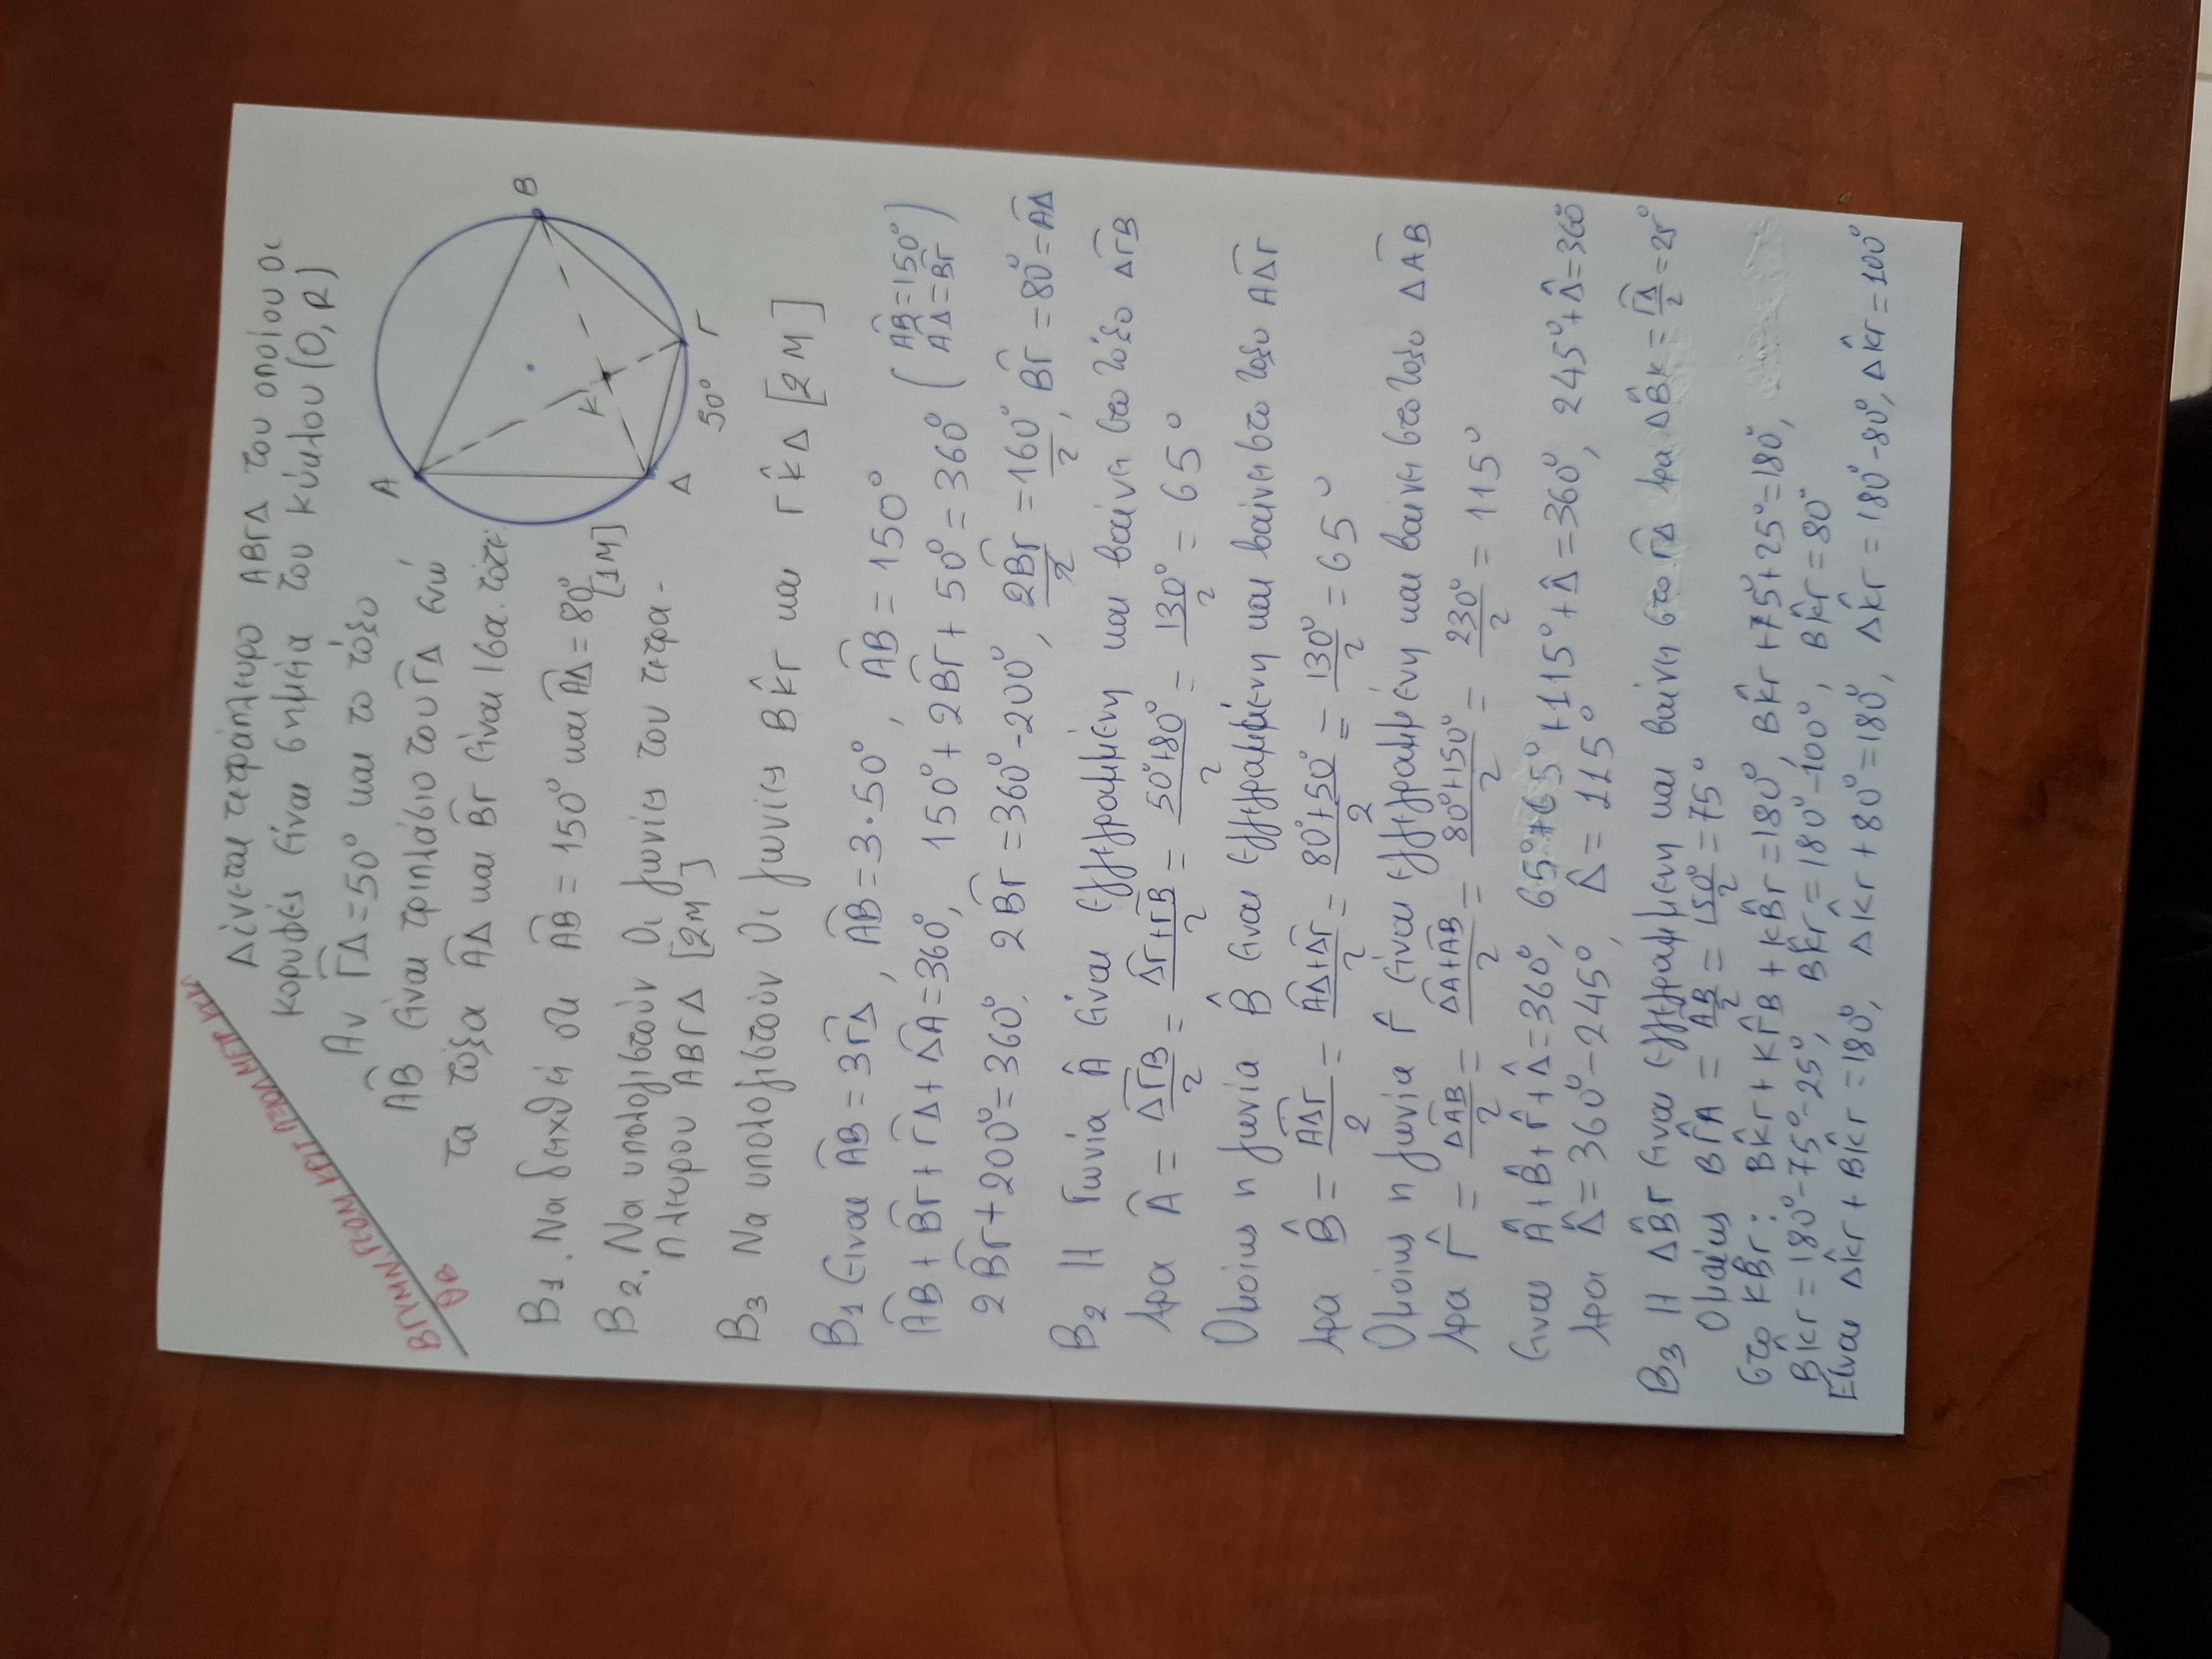 ΒΓΥΜΝ. ΓΕΩΜ ΚΕΦ1
Θα
Δίνεται τετράπλευρο ΑΒΓΔ του οποίου οι
κορυφές είναι σημεία του κύκλου (Ο, R)
Αν Γ͡Δ = 50° και το τόξο
Α͡Β είναι τριπλάσιο του Γ͡Δ ενώ
τα τόξα Α͡Δ και Β͡Γ είναι ίσα. τότε:
Α
Β
Κ
Γ
Δ
50°
Β1. Να δειχθεί οτι Α͡Β = 150° και Α͡Δ = 80° [1Μ]
Β2. Να υπολογιστούν οι γωνίες του τετρα-
πλευρου ΑΒΓΔ [2Μ]
Β3 Να υπολογιστούν οι γωνίες ΒK̂Γ και ΓK̂Δ [2Μ]
Β1 Είναι Α͡Β = 3Γ͡Δ, Α͡Β = 3·50°, Α͡Β = 150°
Α͡Β + Β͡Γ + Γ͡Δ + Δ͡Α = 360°, 150° + 2Β͡Γ + 50° = 360° (Α͡Β = 150° Α͡Δ = Β͡Γ)
2Β͡Γ + 200° = 360°, 2Β͡Γ = 360° - 200°, 2Β͡Γ/2 = 160°/2, Β͡Γ = 80° = Α͡Δ
Β2 Η Γωνία Â είναι εγγεγραμμένη και βαίνει στο τόξο Δ͡ΓΒ
Άρα Â = Δ͡ΓΒ/2 = Δ͡Γ+Γ͡Β/2 = 50°+80°/2 = 130°/2 = 65°
Ομοίως η γωνία B̂ είναι εγγεγραμμένη και βαίνει στο τοξο Α͡ΔΓ
Άρα B̂ = Α͡ΔΓ/2 = Α͡Δ+Δ͡Γ/2 = 80°+50°/2 = 130°/2 = 65°
Ομοίως η γωνία Γ̂ είναι εγγεγραμμένη και βαίνει στο τοξο Δ͡ΑΒ
Άρα Γ̂ = Δ͡ΑΒ/2 = Δ͡Α+Α͡Β/2 = 80°+150°/2 = 230°/2 = 115°
Είναι Â + B̂ + Γ̂ + Δ̂ = 360°, 65° + 65° + 115° + Δ̂ = 360°, 245° + Δ̂ = 360°
Άρα Δ̂ = 360° - 245°, Δ̂ = 115°
Β3 Η ΔB̂Γ είναι εγγεγραμμένη και βαίνει στο Γ͡Δ άρα ΔB̂Κ = Γ͡Δ/2 = 25°
Ομοίως ΒΓ̂Α = Α͡Β/2 = 150°/2 = 75°
Στο ΚΒΓ: ΒK̂Γ + ΚΓ̂Β + ΚB̂Γ = 180°, ΒK̂Γ + 75° + 25° = 180°,
ΒK̂Γ = 180° - 75° - 25°, ΒK̂Γ = 180° - 100°, ΒK̂Γ = 80°
Είναι ΔK̂Γ + ΒK̂Γ = 180°, ΔK̂Γ + 80° = 180°, ΔK̂Γ = 180° - 80°, ΔK̂Γ = 100°